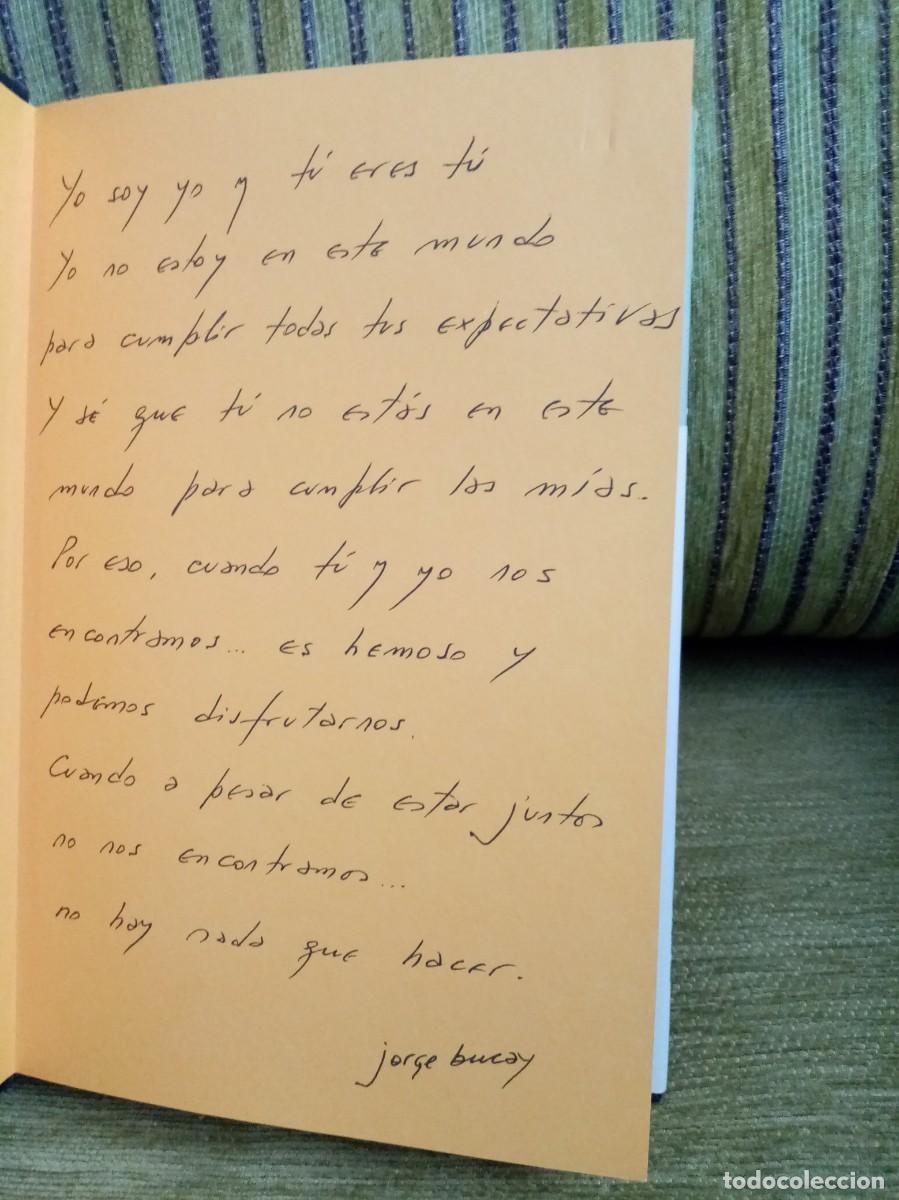 Yo soy yo y tú eres tú
Yo no estoy en este mundo
para cumplir todas tus expectativas
Y sé que tú no estás en este
mundo para cumplir las mías.
Por eso, cuando tú y yo nos
encontramos... es hemoso y
podemos disfrutarnos.
Cuando a pesar de estar juntos
no nos encontramos...
no hay nada que hacer.
jorge bucay
todocoleccion